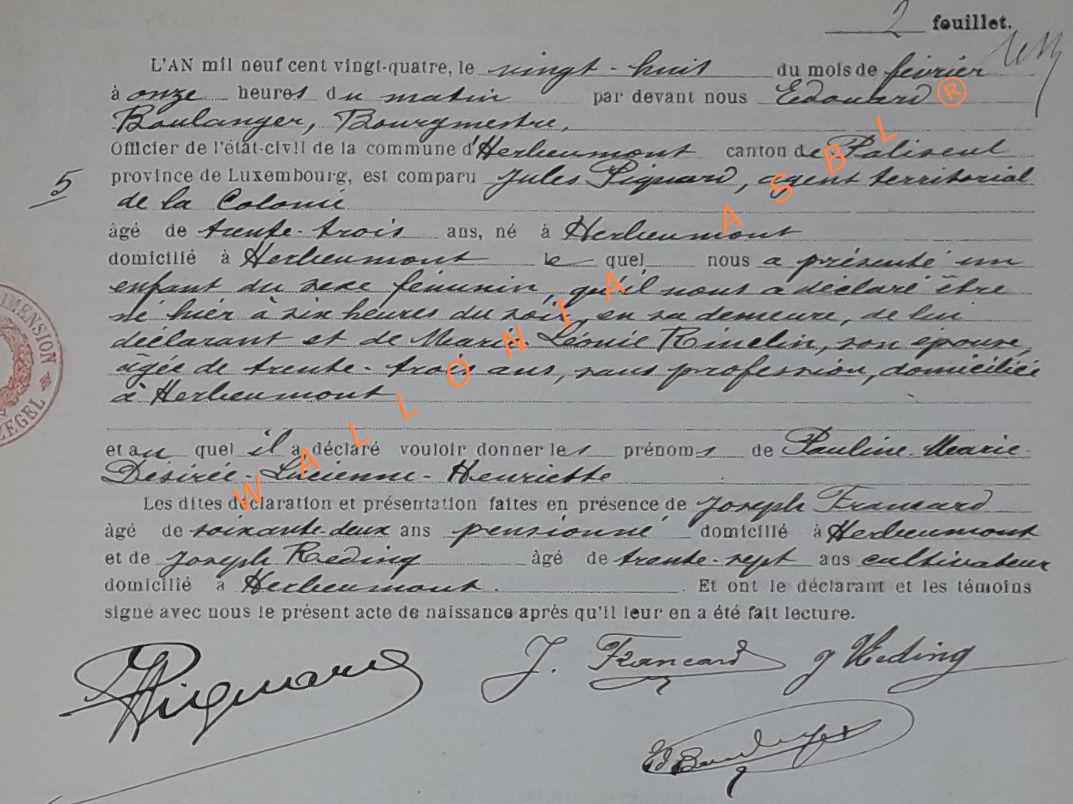 2 feuillet.
L'AN mil neuf cent vingt-quatre, le vingt-huit du mois de février
à onze heures du matin par devant nous Edouard
Boulanger, Bourgmestre,
Officier de l'état-civil de la commune d'Herbeumont canton de Paliseul
5
province de Luxembourg, est comparu Jules Piquard, agent territorial
de la Colonie
âgé de trente-trois ans, né à Herbeumont
domicilié à Herbeumont lequel nous a présenté un
enfant du sexe féminin, qu'il nous a déclaré être
né hier à six heures du soir, en sa demeure, de lui
déclarant et de Marie Léonie son épouse,
âgée de trente-trois ans, sans profession, domiciliée
à Herbeumont
et au quel il a déclaré vouloir donner les prénoms de Pauline-Marie-
Désirée-Lucienne-Henriette
Les dites déclaration et présentation faites en présence de Joseph Francard
âgé de soixante-deux ans pensionné domicilié à Herbeumont
et de Joseph Reding âgé de trente-sept ans cultivateur
domicilié à Herbeumont. Et ont le déclarant et les témoins
signé avec nous le présent acte de naissance après qu'il leur en a été fait lecture.
Piquard J. Francard J Reding
Ed Boulanger
WALLONIA ASBL ®
IMENSION
ZEGEL.